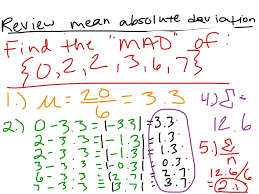 Review mean absolute deviation
Find the "MAD" of:
{0, 2, 2, 3, 6, 7}
1.) μ = 20/6 = 3.3
2.) 0 - 3.3 = |-3.3| = 3.3
2 - 3.3 = |-1.3| = 1.3
2 - 3.3 = |-1.3| = 1.3
3 - 3.3 = |-0.3| = 0.3
6 - 3.3 = |2.7| = 2.7
7 - 3.3 = |3.7| = 3.7
4.) Σ =
12.6
5.) Σ/n
12.6/6
= 2.1